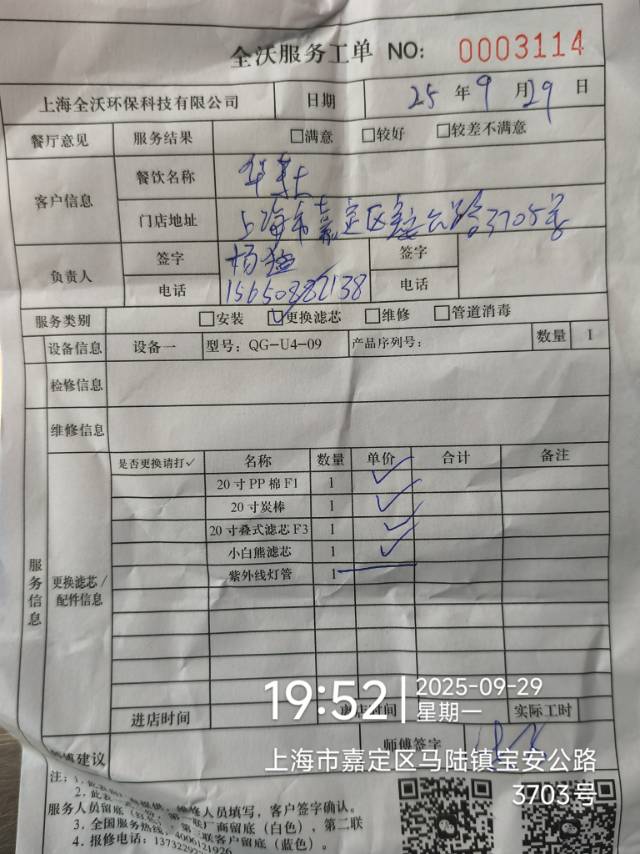 全沃服务工单 NO: 0003114
上海全沃环保科技有限公司 日期 25 年 9 月 29 日
餐厅意见 服务结果 □满意 □较好 □较差不满意
客户信息 餐饮名称 华莱士
门店地址 上海市嘉定区宝安公路3705号
负责人 签字 签字
电话 电话
服务类别 □安装 □更换滤芯 □维修 □管道消毒
设备信息 设备一 型号: QG-U4-09 产品序列号: 数量 1
检修信息
维修信息
服务信息
更换滤芯/配件信息
是否更换请打✓ 名称 数量 单价 合计 备注
20寸PP棉F1 1 ✓
20寸炭棒 1 ✓
20寸叠式滤芯F3 1 ✓
小白熊滤芯 1 ✓
紫外线灯管 1
进店时间 离店时间 实际工时
建议 师傅签字
19:52 2025-09-29
星期一
上海市嘉定区马陆镇宝安公路
3703号
注: 1.
2. 维修人员填写，客户签字确认。
服务人员留底 商留底（白色），第二联
3. 全国服务热线: 4006121926 联客户留底（蓝色）。
4. 报修电话: